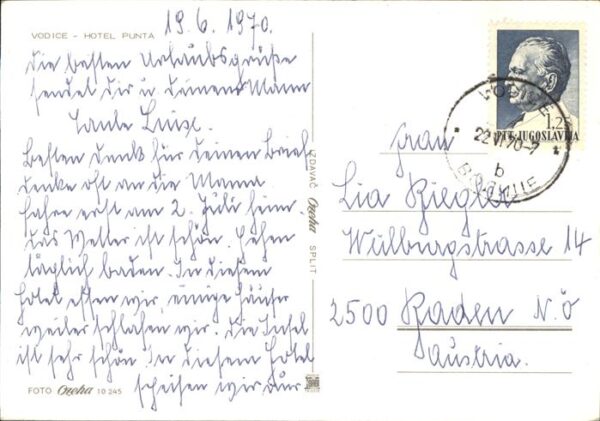 VODICE - HOTEL PUNTA
19.6.1970.
die besten Urlaubsgrüße
sendet dir u deinem Mann
Tante Luise.
Besten Dank für deinen Brief
denke oft an die Mama
fahre erst am 2. Juli heim.
das Wetter ist schön. Gehen
täglich baden. In diesem
Hotel essen wir, einige Häuser
weiter schlafen wir. die Insel
ist sehr schön. In diesem Hotel
speisen wir nur
FOTO Ozeha 10 245
IZDAVAČ Ozeha SPLIT
1,25
PTT JUGOSLAVIJA
VODICE
22.VI.70-7
b
Frau
Lia Riegler
Wülburgstrasse 14
2500 Baden N.Ö
Austria.